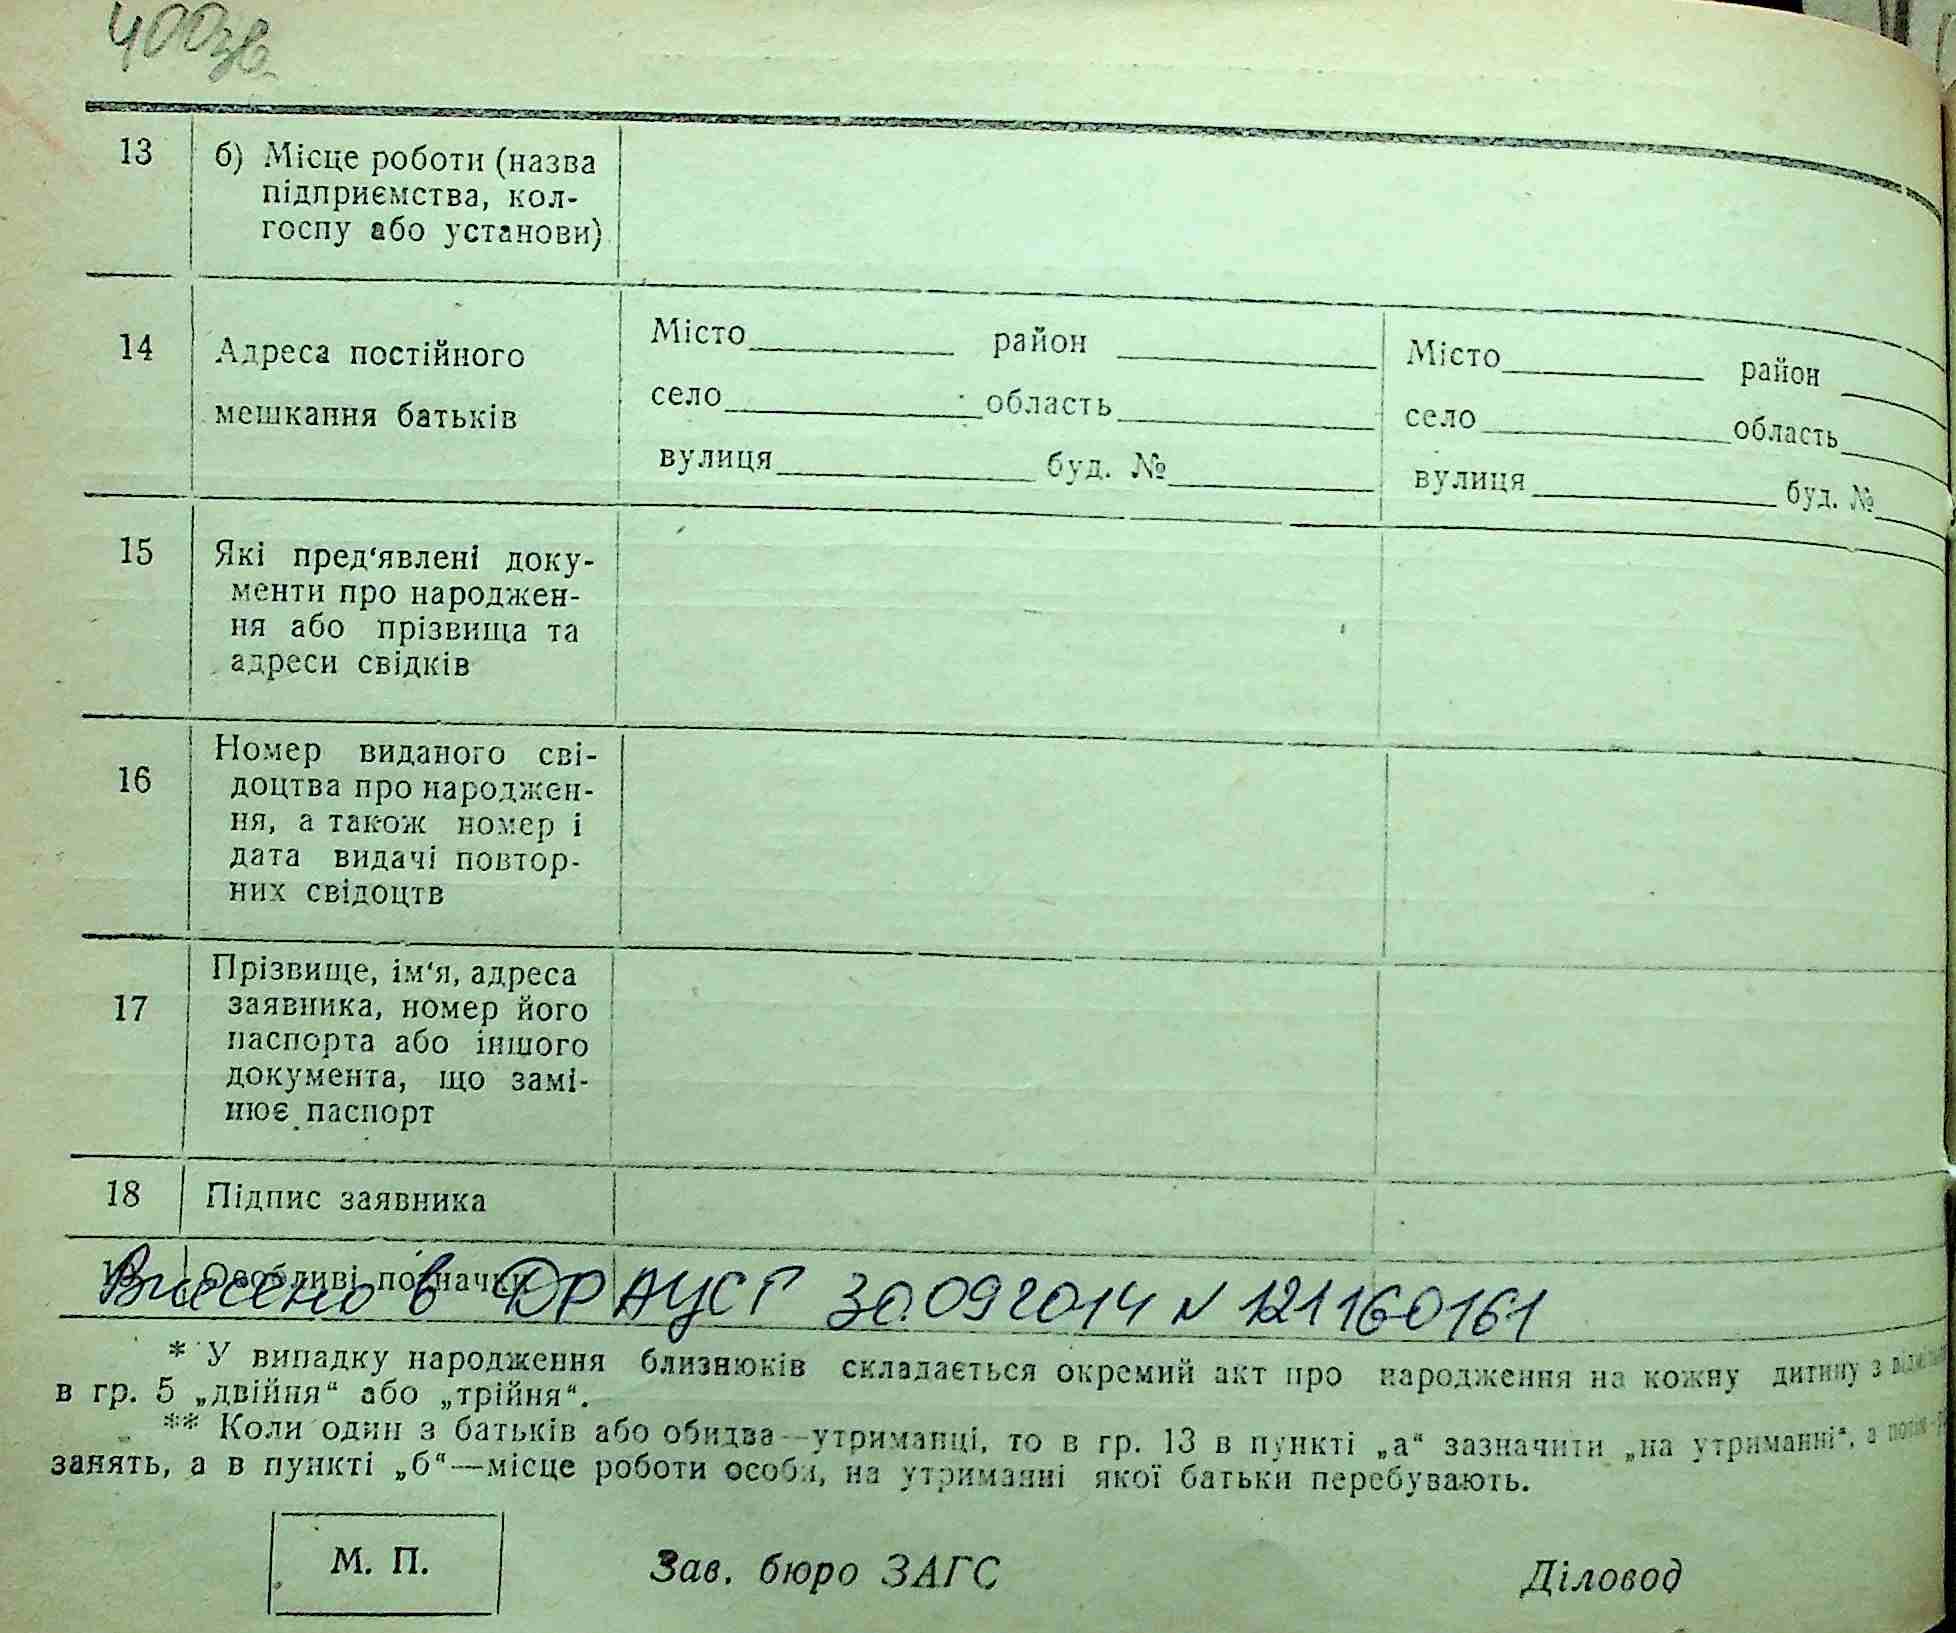 400зв.
13
б) Місце роботи (назва
підприємства, кол-
госпу або установи)
14
Адреса постійного
мешкання батьків
Місто район
село область
вулиця буд. №
Місто район
село область
вулиця буд. №
15
Які пред‘явлені доку-
менти про народжен-
ня або прізвища та
адреси свідків
16
Номер виданого сві-
доцтва про народжен-
ня, а також номер і
дата видачі повтор-
них свідоцтв
17
Прізвище, ім‘я, адреса
заявника, номер його
паспорта або іншого
документа, що замі-
нює паспорт
18
Підпис заявника
Особливі позначки
Внесено в ДРАЦСГ 30.09 2014 N 121160161
* У випадку народження близнюків складається окремий акт про народження на кожну дитину з
в гр. 5 „двійня“ або „трійня“.
** Коли один з батьків або обидва—утриманці, то в гр. 13 в пункті „а“ зазначити „на утриманні“, а
занять, а в пункті „б“—місце роботи особи, на утриманні якої батьки перебувають.
М. П.
Зав. бюро ЗАГС
Діловод